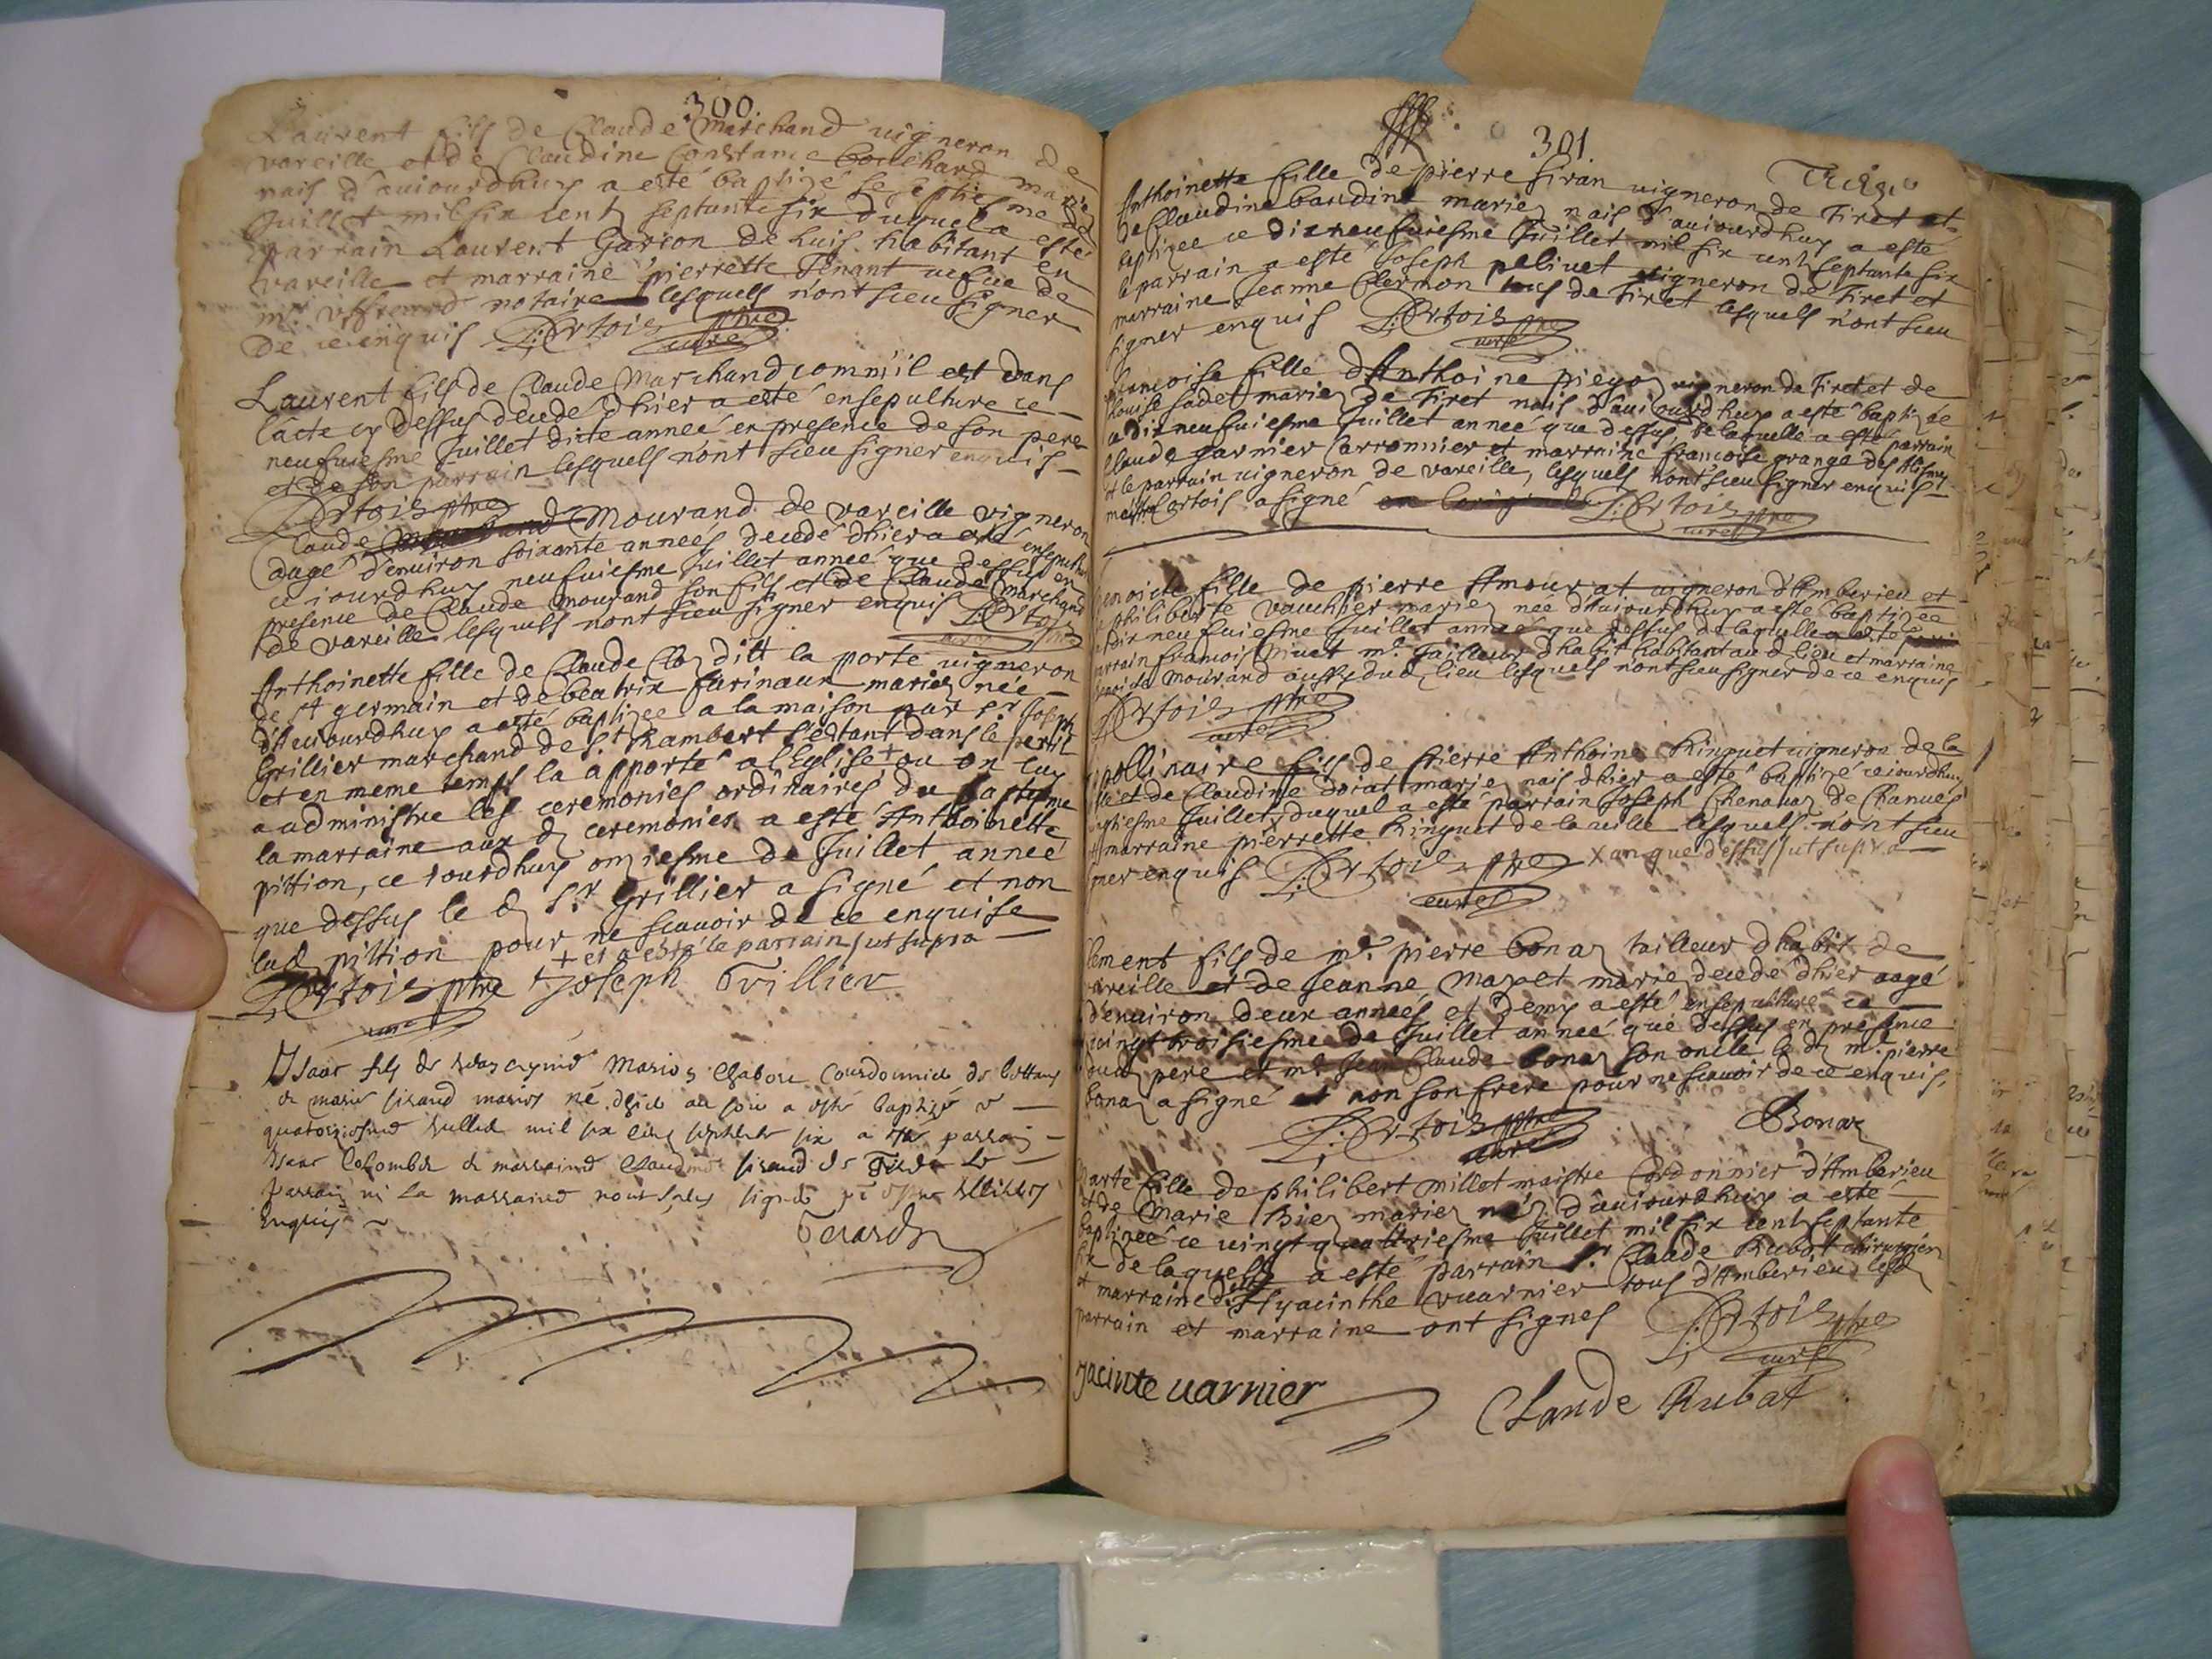 300.
Laurent fils de Claude Marchand vigneron de
vareille et de Claudine Constance bouchard mariez
nais d'auiourdhuy a esté baptizé le septiesme de
Juillet mil six cent septante six duquel a esté
parrain Laurent Garson de Luis habitant en
vareille et marraine pierrette Tenant vefue de
mr notaire lesquels n'ont sceu signer
de ce enquis L: Ertois ptre
curé
Laurent fils de Claude Marchand comm'il est dans
l'acte cy dessus decedé d'hier a esté ensepulturé ce
neufuiesme Juillet dicte anneé en presence de son pere
et de son parrain lesquels n'ont sceu signer enquis
L: Ertois ptre
Claude Mourand de vareille vigneron
aagé d'enuiron soixante anneés decedé d'hier a esté ensepulturé
ce iourdhuy neufuiesme Juillet anneé que dessus en
presence de Claude mourand son fils et de Claude Marchand
de vareille lesquels n'ont sceu signer enquis L: Ertois ptre
curé
Anthoinette fille de Claude Cloz ditt la porte vigneron
de st germain et de beatrix farinaux mariez née
d'Auiourdhuy a esté baptizeé a la maison par sr Joseph
Grillier marchand de St. Rambert s'estant dans le peril
et en meme temps la apporté a l'Eglise + ou on luy
a administre les ceremonies ordinaires du baptesme
la marraine aux d ceremonies a esté Anthoinette
pittion, ce iourdhuy onziesme de Juillet anneé
que dessus le d Sr Grillier a signé et non
lad pittion pour ne scauoir de ce enquise
+ et a esté le parrain ut supra
L: Ertois ptre Joseph Grillier
curé
Isaac fils de Marios Chabou Courdounié de
et marie siraud mariés né d'hié au soir a esté baptizé ce
quatorziesme Juillet mil six cens septante six a esté parrain
Isaac Colomba et marraine Claudine siraud de Tiret le
parrain ni la marraine n'ont sceu signer
enquis
Gerard
301
Anthoinette fille de pierre siran vigneron de Tiret et
de Claudine baudine mariez nais d'auiourdhuy a esté
baptizeé ce dixneufuiesme Juillet mil six cent septante six
le parrain a esté Joseph peliuet vigneron de Tiret et
marraine Jeanne Clermon tous de Tiret lesquels n'ont sceu
signer enquis L: Ertois ptre
curé
francoise fille d'Anthoine piegoz vigneron de Tiret et de
louise sadet mariez de Tiret nais d'auiourdhuy a esté baptizeé
ce dixneufuiesme Juillet anneé que dessus de laquelle a esté parrain
Claude garnier Carronnier et marraine francoise granga des Alimes
et le parrain vigneron de vareille, lesquels n'ont sceu signer enquis
mestre Ertois a signé L: Ertois ptre
curé
benoicte fille de pierre Amourat vigneron d'Amberieu et
de philiberte vauchier mariez neé d'Auiourdhuy a esté baptizeé
ce dixneufuiesme Juillet anneé que dessus de laquelle a esté
parrain francois niuet mr. Tailleur d'habit habitant aud lieu et marraine
benoicte Mourand aussy dud lieu lesquels n'ont sceu signer de ce enquis
L: Ertois ptre
curé
Apollinaire fils de Pierre Anthoine Ringuet vigneron de la
ville et de Claudine dorat mariez nais d'hier a esté baptizé ce iourdhuy
vigtiesme Juillet x duquel a esté parrain Joseph Chenauaz de Chanues
et marraine pierrette Ringuet de la ville lesquels n'ont sceu
signer enquis L: Ertois ptre x an que dessus ut supra
curé
Clement fils de mr. pierre bonaz tailleur d'habit de
vareille et de Jeanne Mapet mariez decedé d'hier aagé
d'enuiron deux anneés et demy a esté ensepulturé ce
vingt troisiesme de Juillet anneé que dessus en presence
dud pere et mr Claude bonaz son oncle le d mr. pierre
bonaz a signé et non son frere pour ne scauoir de ce enquis.
L: Ertois ptre
curé
Bonaz
Marte fille de philibert millet maistre Cordonnier d'Amberieu
et de Marie Biez mariez neé d'auiourdhuy a esté
baptizeé ce vingt quattriesme Juillet mil six cent septante
six de laquelle a esté parrain Sr. Claude Rubat chirurgien
et marraine dlle Hyacinthe vuarnier tous d'Amberieu lesd
parrain et marraine ont signés L: Ertois ptre
curé
Jacinte uarnier
Claude Rubat